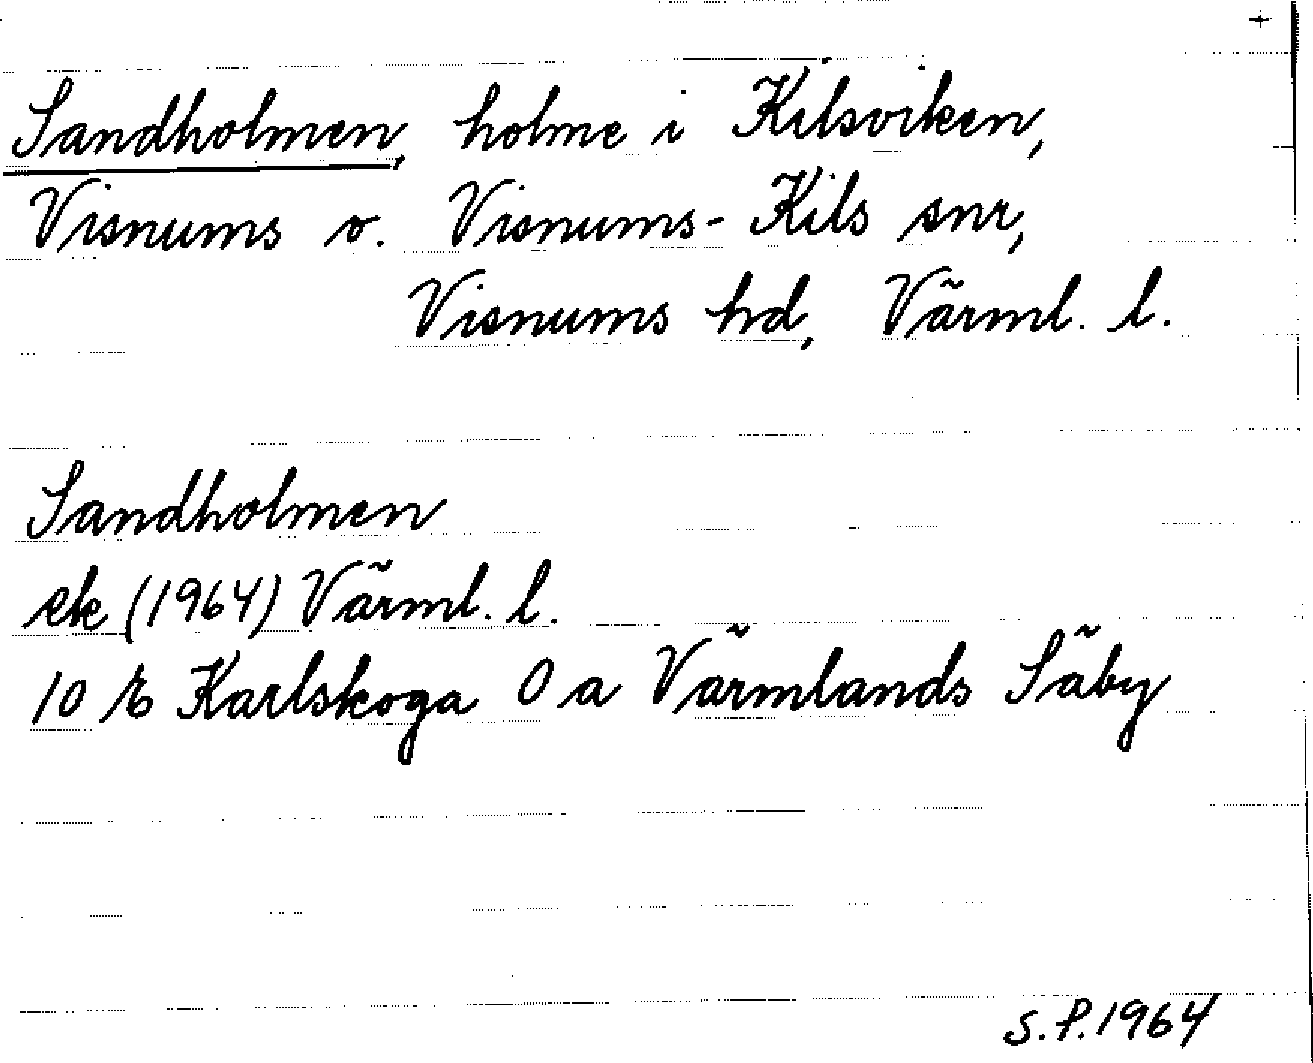 +
Sandholmen, holme i Kilsviken,
Visnums o. Visnums-Kils snr,
Visnums hd, Värml. l.
Sandholmen
ek (1964) Värml. l.
10 E Karlskoga 0 a Värmlands Säby
S.F. 1964